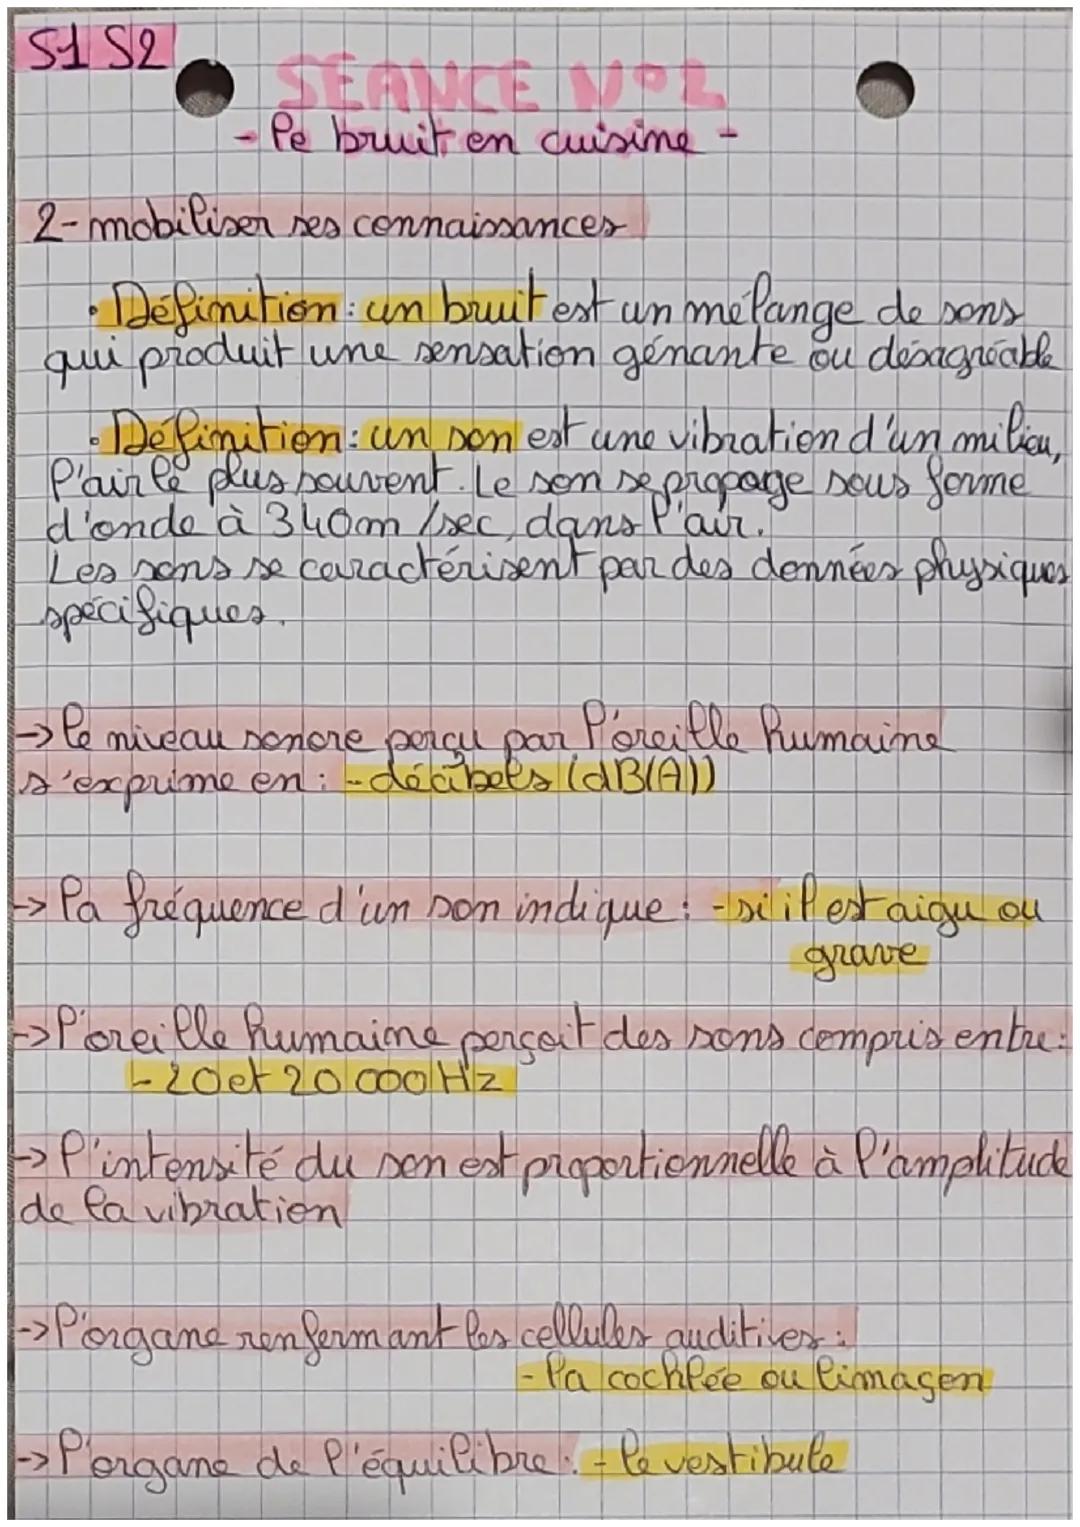 S1 S2
SEANCE N°2
- le bruit en cuisine -
2- mobiliser ses connaissances
• Définition : un bruit est un mélange de sons
qui produit une sensation génante ou désagréable
• Définition : un son est une vibration d'un milieu,
l'air le plus souvent. Le son se propage sous forme
d'onde à 340m/sec, dans l'air.
Les sons se caractérisent par des données physiques
spécifiques.
-> le niveau sonore perçu par l'oreille humaine
s'exprime en : - décibels (dB(A))
-> la fréquence d'un son indique : - si il est aigu ou
grave
-> l'oreille humaine perçoit des sons compris entre :
- 20 et 20 000 Hz
-> l'intensité du son est proportionnelle à l'amplitude
de la vibration
-> l'organe renfermant les cellules auditives :
- la cochlée ou limaçon
-> l'organe de l'équilibre : - le vestibule